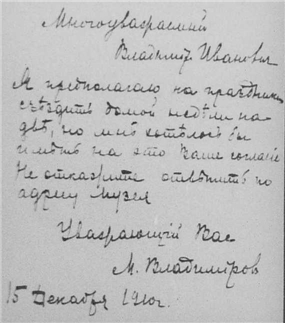 Многоуважаемый
Владимир Иванович
Я предполагаю на праздники
съѣздить домой недѣли на
двѣ, но мнѣ хотѣлось бы
имѣть на это Ваше согласіе
Не откажите отвѣтить по
адресу Музея
Уважающій Вас
М. Владимиров
15 Декабря 1910 г.